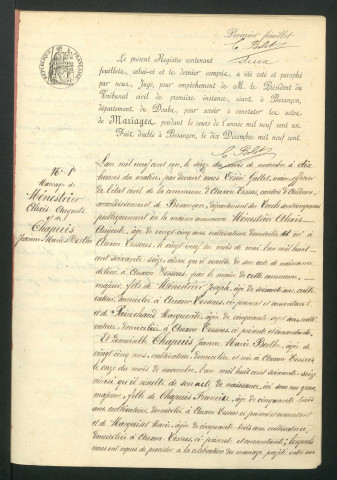 Premier feuillet
Le présent Registre contenant
feuillets, celui-ci et le dernier compris, a été coté et paraphé
par nous, Juge, pour empêchement de M. le Président du
Tribunal civil de première instance, séant, à Besançon,
département du Doubs, pour servir à constater les actes
de Mariages pendant le cours de l'année mil neuf cent un.
Fait double à Besançon, le dix Décembre mil neuf cent.
N° 1
Mariage de
Ménestrier
Alexis Auguste
et de
Chapuis
Jeanne Marie Berthe
L'an mil neuf cent un, le seize du mois de novembre à dix
heures du matin, par devant nous Gallet, maire, officier
de l'état civil de la commune d'Auxon-Dessus, canton d'Audeux
arrondissement de Besançon, département du Doubs ont comparu
publiquement en la maison commune Ménestrier Alexis
Auguste, âgé de vingt cinq ans, cultivateur, domicilié et né à
Auxon Dessus, le vingt neuf du mois de mai, l'an mil huit
cent soixante seize, ainsi qu'il résulte de son acte de naissance
délivré à Auxon Dessus, par le maire de cette commune,
majeur, fils de Ménestrier Joseph, âgé de soixante ans, culti-
vateur, domicilié à Auxon-Dessus, ci présent et consentant
et de Marguerite, âgée de cinquante sept ans, culti-
vatrice, domiciliée à Auxon Dessus, ci présente et consentante,
Et Demoiselle Chapuis Jeanne Marie Berthe, âgée de
vingt cinq ans, cultivatrice, domiciliée et née à Auxon Dessus
le onze du mois de novembre, l'an mil huit cent soixante seize
ainsi qu'il résulte de son acte de naissance, ici sous nos yeux,
majeure, fille de Chapuis François, âgé de cinquante
ans, cultivateur, domicilié à Auxon Dessus, ci présent et consentant
et de Marquiset Marie, âgée de cinquante trois ans, cultivatrice,
domiciliée à Auxon-Dessus, ci présente et consentante; lesquels
nous ont requis de procéder à la célébration du mariage projeté entre eux